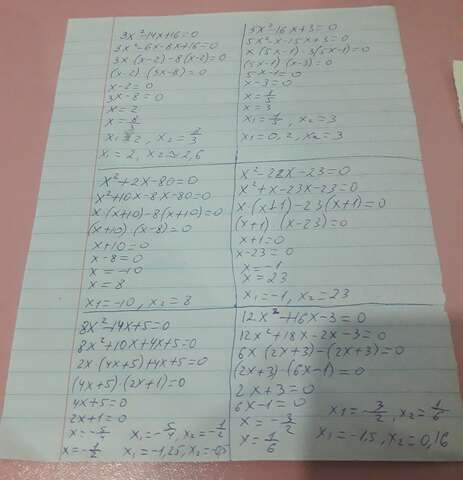 3x²-14x+16=0
3x²-6x-8x+16=0
3x(x-2)-8(x-2)=0
(x-2)·(3x-8)=0
x-2=0
3x-8=0
x=2
x=8/3
x₁=2, x₂=8/3
x₁=2, x₂≈2,6
5x²-16x+3=0
5x²-x-15x+3=0
x(5x-1)-3(5x-1)=0
(5x-1)·(x-3)=0
5x-1=0
x-3=0
x=1/5
x=3
x₁=1/5, x₂=3
x₁=0,2, x₂=3
x²+2x-80=0
x²+10x-8x-80=0
x·(x+10)-8(x+10)=0
(x+10)·(x-8)=0
x+10=0
x-8=0
x=-10
x=8
x₁=-10, x₂=8
x²-22x-23=0
x²+x-23x-23=0
x·(x+1)-23(x+1)=0
(x+1)·(x-23)=0
x+1=0
x-23=0
x=-1
x=23
x₁=-1, x₂=23
8x²-14x+5=0
8x²+10x+4x+5=0
2x·(4x+5)+4x+5=0
(4x+5)·(2x+1)=0
4x+5=0
2x+1=0
x=-5/4
x=-1/2
x₁=-5/4, x₂=-1/2
x₁=-1,25, x₂=-0,5
12x²+16x-3=0
12x²+18x-2x-3=0
6x(2x+3)-(2x+3)=0
(2x+3)·(6x-1)=0
2x+3=0
6x-1=0
x=-3/2
x=1/6
x₁=-3/2, x₂=1/6
x₁=-1,5, x₂=0,16